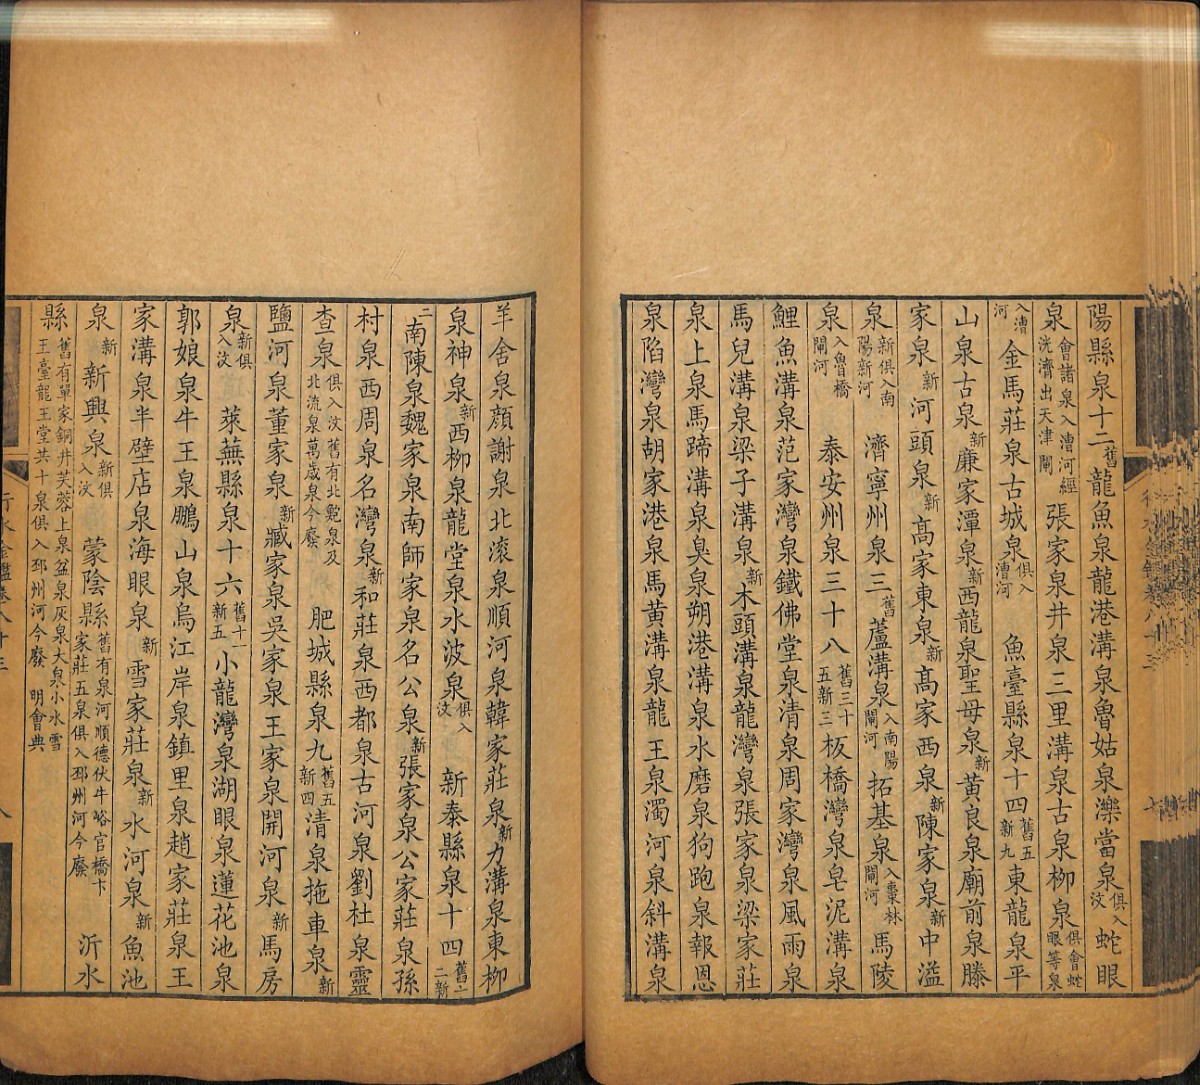 陽縣泉十二舊龍魚泉龍港溝泉魯姑泉濼當泉俱入汶蛇眼
泉會諸泉入漕河經洸濟出天津閘張家泉井泉三里溝泉古泉柳泉俱會蛇眼等泉
入漕河金馬莊泉古城泉俱入漕河魚臺縣泉十四舊五新九東龍泉平
山泉古泉新廉家潭泉新西龍泉聖母泉新黃良泉廟前泉滕
家泉新河頭泉新高家東泉新高家西泉新陳家泉新中溢
泉新俱入南陽新河濟寧州泉三舊蘆溝泉入南陽閘河拓基泉入棗林閘河馬陵
泉入魯橋閘河泰安州泉三十八舊三十五新三板橋灣泉皂泥溝泉
鯉魚溝泉范家灣泉鐵佛堂泉清泉周家灣泉風雨泉
馬兒溝泉梁子溝泉新木頭溝泉龍灣泉張家泉梁家莊
泉上泉馬蹄溝泉臭泉朔港溝泉水磨泉狗跑泉報恩
泉陷灣泉胡家港泉馬黃溝泉龍王泉濁河泉斜溝泉
羊舍泉顏謝泉北滚泉順河泉韓家莊泉新力溝泉東柳
泉神泉新西柳泉龍堂泉水波泉俱入汶新泰縣泉十四舊二新
二南陳泉魏家泉南師家泉名公泉新張家泉公家莊泉孫
村泉西周泉名灣泉新和莊泉西都泉古河泉劉杜泉靈
查泉俱入汶舊有北鮑泉及北流泉萬歲泉今廢肥城縣泉九舊五新四清泉拖車泉新
鹽河泉董家泉新臧家泉吳家泉王家泉開河泉新馬房
泉新俱入汶萊蕪縣泉十六舊十一新五小龍灣泉湖眼泉蓮花池泉
郭娘泉牛王泉鵬山泉烏江岸泉鎮里泉趙家莊泉王
家溝泉半壁店泉海眼泉新雪家莊泉新水河泉新魚池
泉新新興泉新俱入汶蒙陰縣舊有泉河順德伏牛峪官橋卞家莊五泉俱入邳州河今廢沂水
縣舊有單家銅井芙蓉上泉盆泉灰泉大泉小水雪王臺龍王堂共十泉俱入邳州河今廢明會典